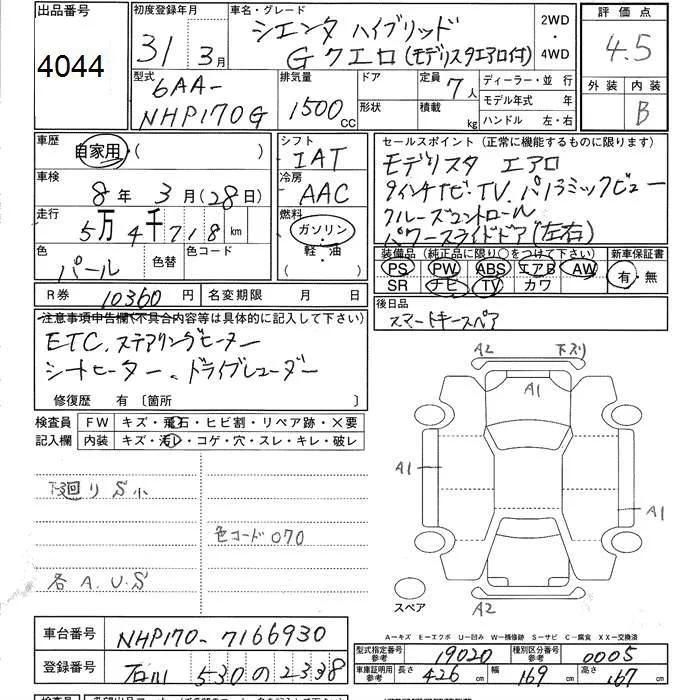 出品番号
4044
初度登録年月
31年 3月
車名・グレード
シエンタ ハイブリッド
G クエロ (モデリスタエアロ付)
2WD
・
4WD
評価点
4.5
外装 内装
B
型式
6AA-
NHP170G
排気量
1500cc
ドア
形状
定員 7人
積載 kg
ディーラー・並行
モデル年式 年
ハンドル 左・右
車歴
自家用・( )
車検
8年 3月(28日)
走行
5万4千718km
色
パール
色替
色コード
シフト
IAT
冷房
AAC
燃料
ガソリン・
軽・油
( )
セールスポイント (正常に機能するものに限ります)
モデリスタ エアロ
9インチナビ・TV.パノラミックビュー
クルーズコントロール
パワースライドドア(左右)
装備品 (純正品に限り○をつけて下さい)
PS PW ABS エアB AW
SR ナビ TV カワ
新車保証書
有・無
R券 10360円
名変期限 月 日
後日品
スマートキースペア
注意事項申告欄(不具合内容等は具体的に記入して下さい)
ETC.ステアリングヒーター
シートヒーター、ドライブレコーダー
修復歴 有 〔箇所 〕
検査員
記入欄
FW キズ・飛石・ヒビ割・リペア跡・×要
内装 キズ・汚レ・コゲ・穴・スレ・キレ・破レ
下廻りS小
色コード070
各A.U.S
A2 下スリ
A1
A1
A1
A2
スペア
A-キズ E-エクボ U-凹み W-補修跡 S-サビ C-腐食 XX-交換済
車台番号 NHP170-7166930
登録番号 石川 530 の 2338
型式指定番号
参考
19020
種別区分番号
参考
0005
車庫証明用
参考
長さ 426cm
幅 169cm
高さ 167cm